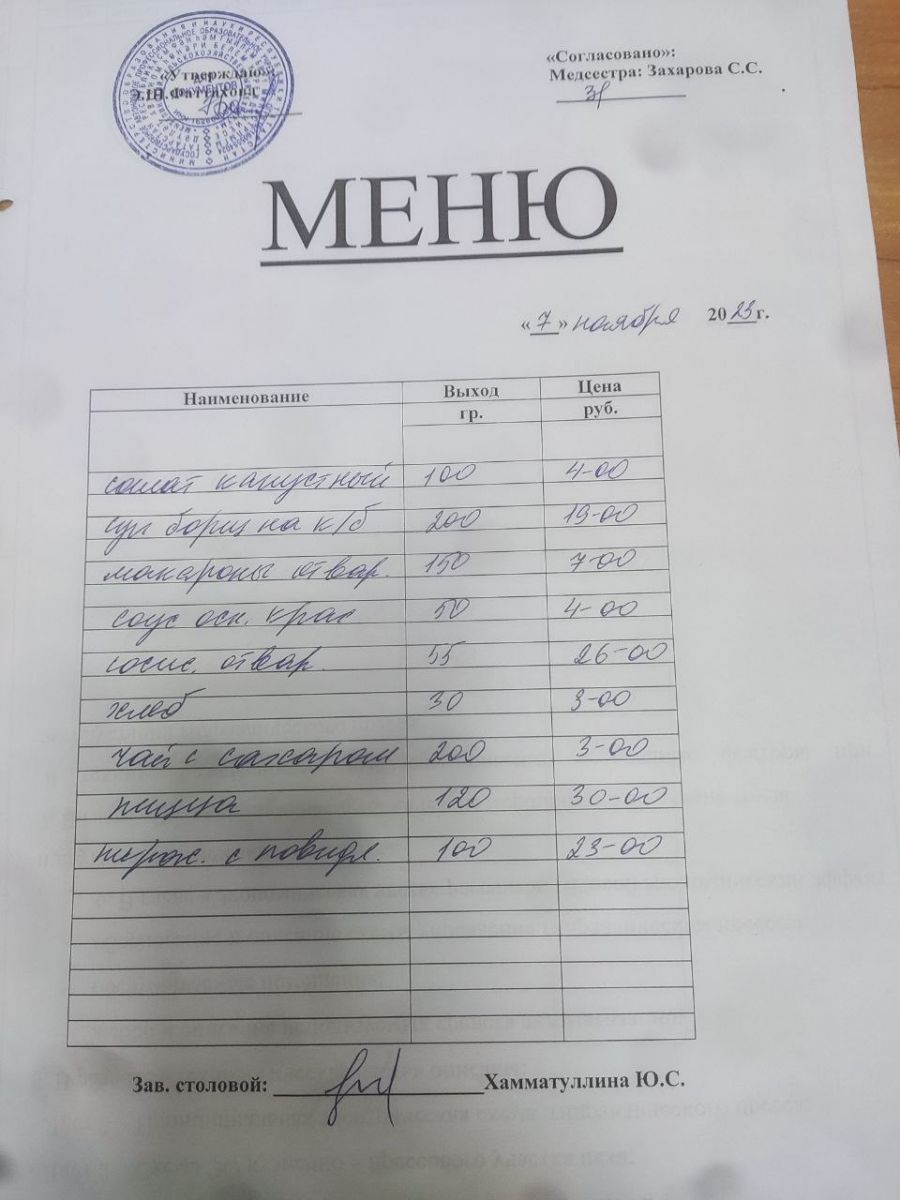 «Утверждаю»
«Согласовано»:
Медсестра: Захарова С.С.
МЕНЮ
«7» ноября 2023г.
Наименование Выход гр. Цена руб.
салат капустный 100 4-00
суп борщ на к/б 200 19-00
макароны отвар. 150 7-00
соус осн. крас 50 4-00
сосис. отвар. 55 26-00
хлеб 30 3-00
чай с сахаром 200 3-00
пицца 120 30-00
пирож. с повидл. 100 23-00
Зав. столовой: Хамматуллина Ю.С.